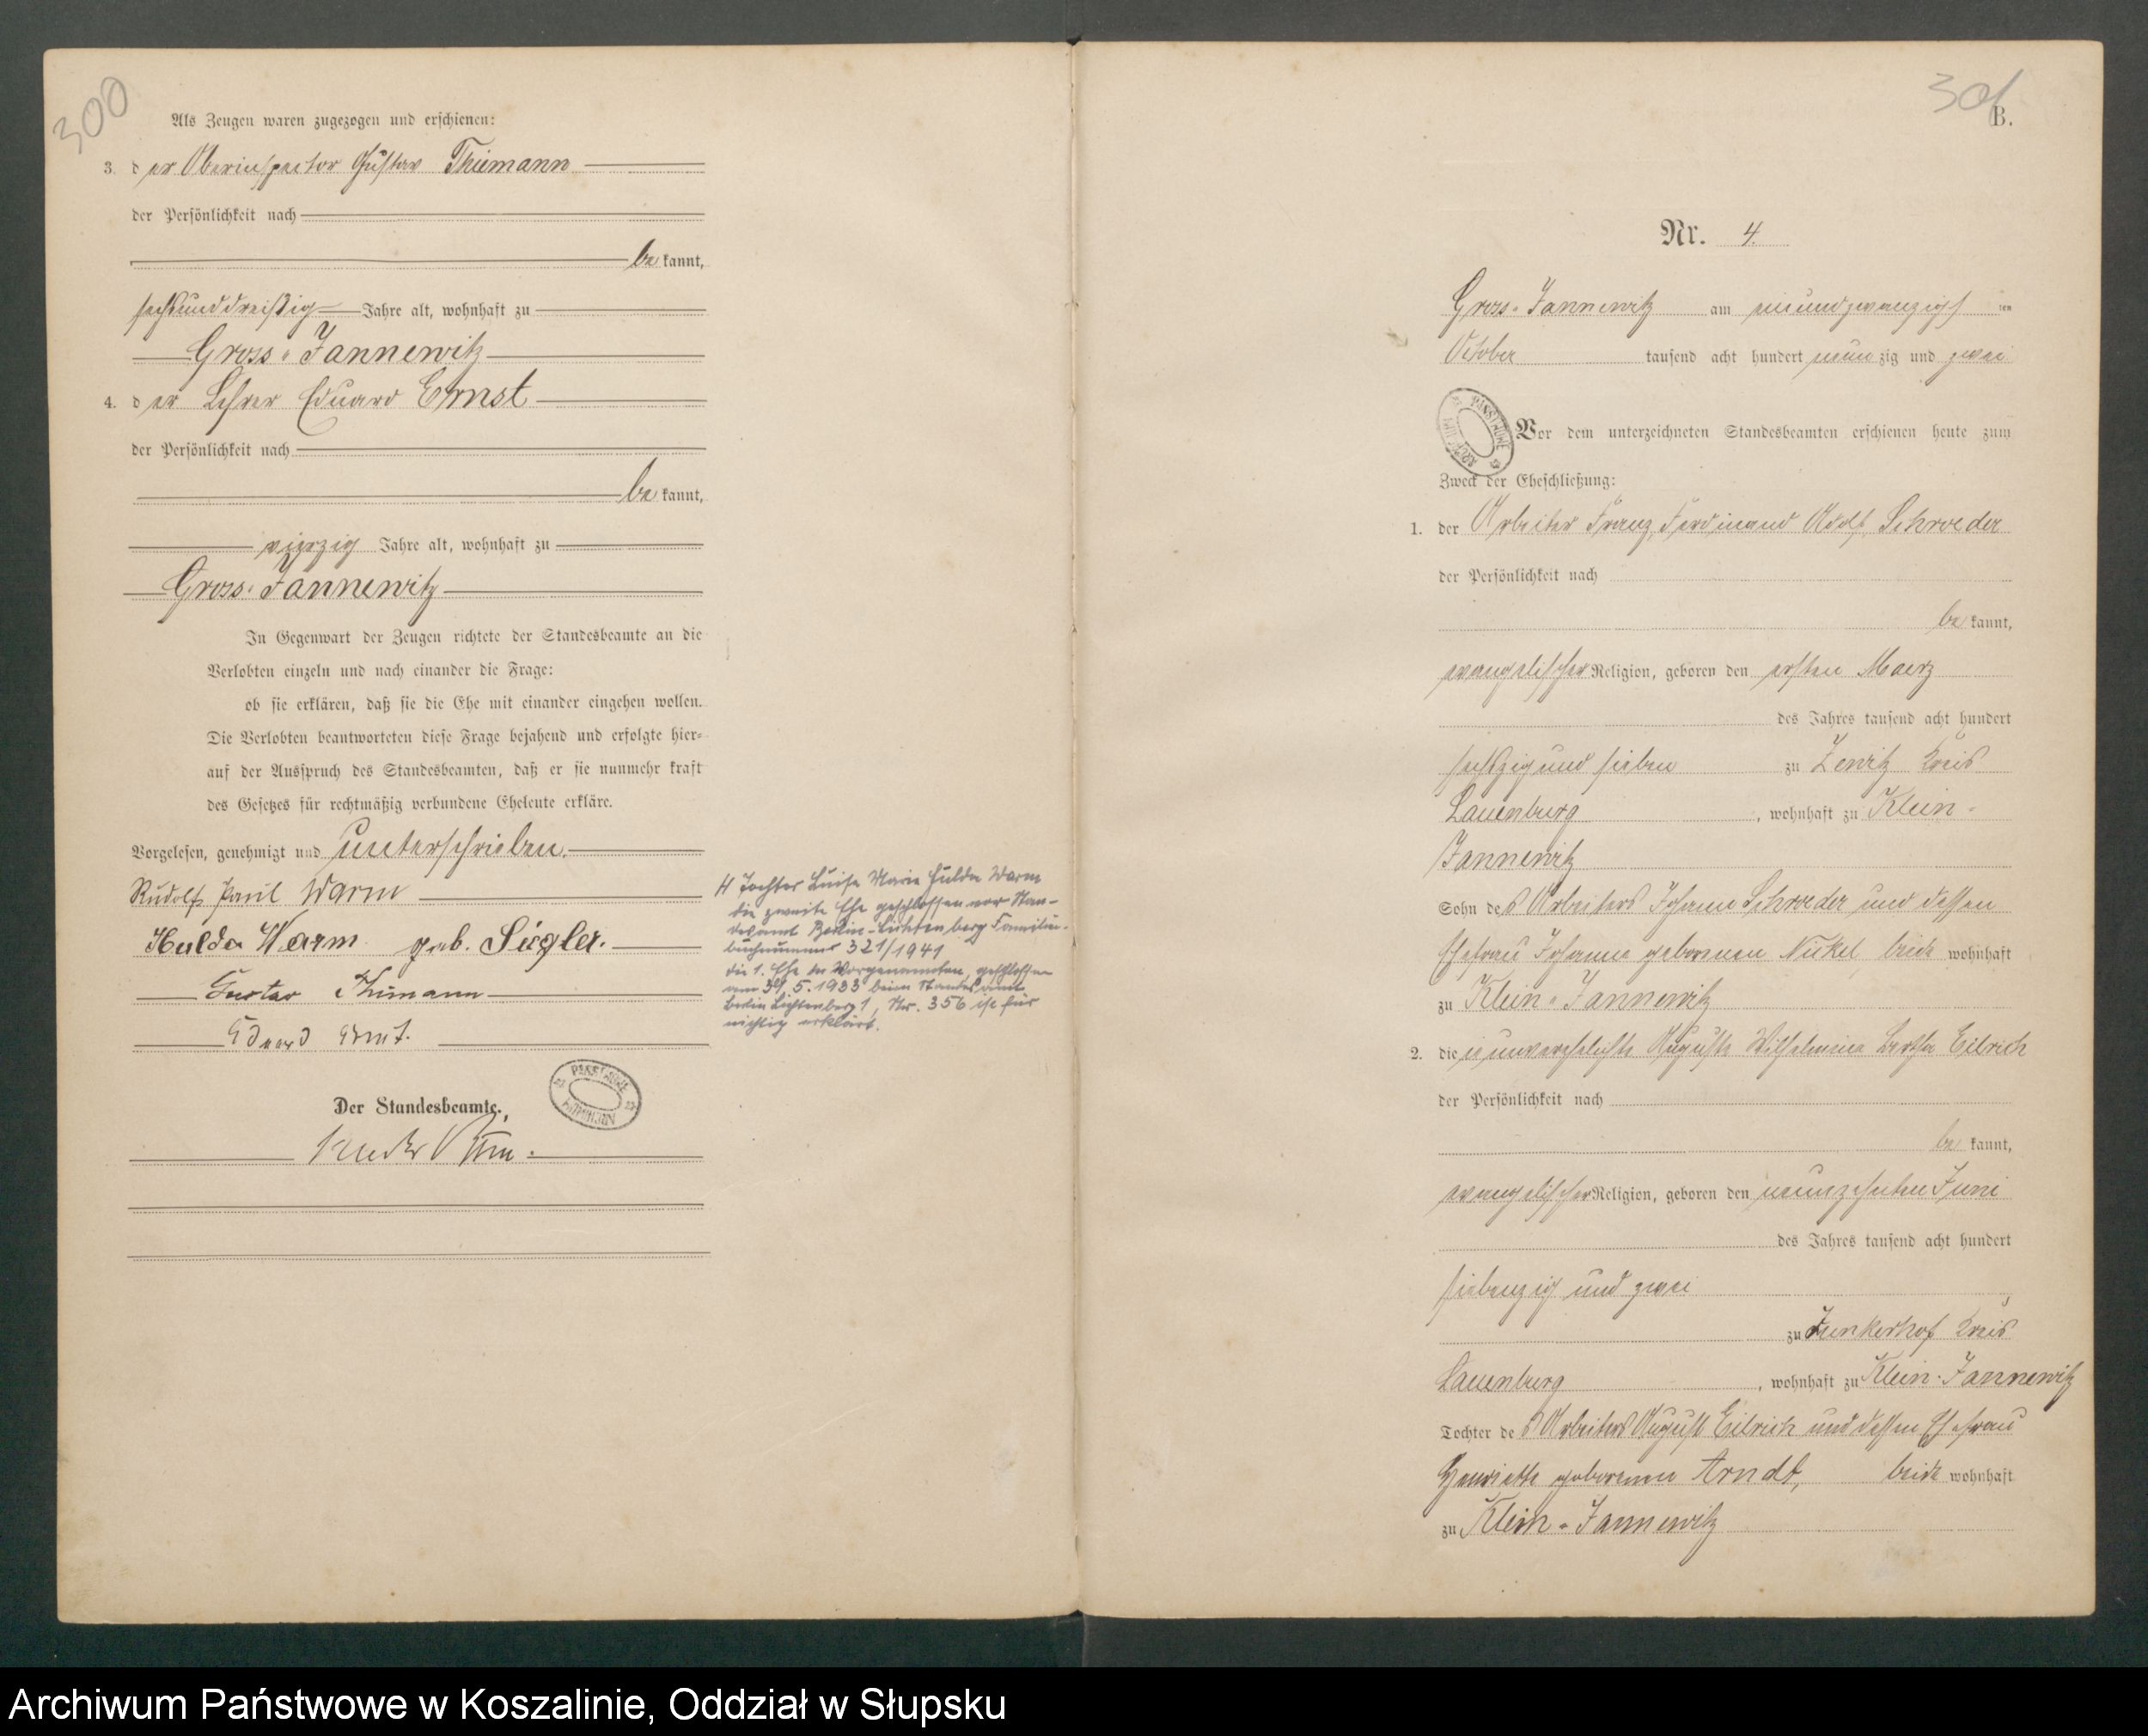 300
Als Zeugen waren zugezogen und erschienen:
3. der Oberinspector Gustav Thümann
der Persönlichkeit nach
be kannt,
sechsunddreißig Jahre alt, wohnhaft zu
Gross-Jannewitz
4. der Lehrer Eduard Ernst
der Persönlichkeit nach
be kannt,
vierzig Jahre alt, wohnhaft zu
Gross-Jannewitz
In Gegenwart der Zeugen richtete der Standesbeamte an die
Verlobten einzeln und nach einander die Frage:
ob sie erklären, daß sie die Ehe mit einander eingehen wollen.
Die Verlobten beantworteten diese Frage bejahend und erfolgte hier-
auf der Ausspruch des Standesbeamten, daß er sie nunmehr kraft
des Gesetzes für rechtmäßig verbundene Eheleute erkläre.
Vorgelesen, genehmigt und unterschrieben.
Rudolf Paul Warm
Hulda Warm geb. Siegler.
Gustav Thümann
Eduard Ernst.
Der Standesbeamte.
H Tochter Luise Marie Hulda Warm
die zweite Ehe geschlossen vor Stan-
desamt Berlin-Lichtenberg Familien-
buchnummer 321/1941
die 1. Ehe der Vorgenannten, geschlossen
am 31.5.1933 beim Standesamt
Berlin Lichtenberg 1, Nr. 356 ist für
nichtig erklärt.
301
B.
Nr. 4.
Gross-Jannewitz am neunundzwanzigsten
October tausend acht hundert neunzig und zwei
Vor dem unterzeichneten Standesbeamten erschienen heute zum
Zweck der Eheschließung:
1. der Arbeiter Franz Ferdinand Adolf Schroeder
der Persönlichkeit nach
be kannt,
evangelischer Religion, geboren den ersten Maerz
des Jahres tausend acht hundert
sechszig und sieben zu Zewitz Kreis
Lauenburg, wohnhaft zu Klein-
Jannewitz
Sohn des Arbeiters Johann Schroeder und dessen
Ehefrau Johanne geborenen Nickel beide wohnhaft
zu Klein-Jannewitz
2. die unverehelichte Auguste Wilhelmine Bertha Eilrich
der Persönlichkeit nach
be kannt,
evangelischer Religion, geboren den neunzehnten Juni
des Jahres tausend acht hundert
siebenzig und zwei
zu Junkerhof Kreis
Lauenburg, wohnhaft zu Klein-Jannewitz
Tochter des Arbeiters August Eilrich und dessen Ehefrau
Henriette geborenen Arndt, beide wohnhaft
zu Klein-Jannewitz
Archiwum Państwowe w Koszalinie, Oddział w Słupsku